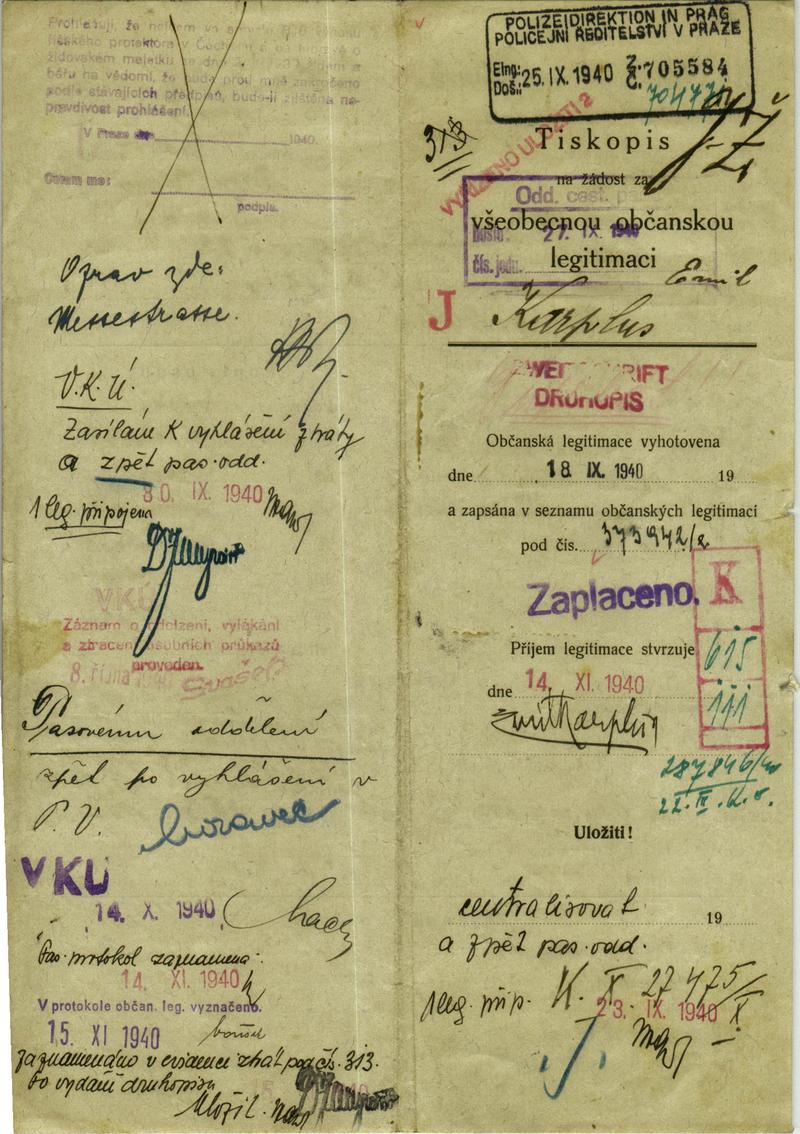 Prohlašuji, že nejsem ve
říšského protektora v Čechách a
židovském majetku ze dne
béřu na vědomí, že bude proti mně zakročeno
podle stávajících předpisů, bude-li zjištěna ne-
pravdivost prohlášení.
V Praze dne 1940.
podpis.
Oprav zde:
Messestrasse.
V.K.Ú.
Zasílám K vyhlášení ztráty
a zpět pas. odd.
30. IX. 1940
1 leg. připojena
VKÚ
Záznam o odcizení, vylákání
a ztracení osobních průkazů
proveden.
8. října
Pasovému oddělení
zpět po vyhlášení v
P. V.
VKU
14. X. 1940
Pas. protokol zaznamena:
14. XI. 1940
V protokole občan. leg. vyznačeno.
15. XI 1940
zaznamenáno v evidenci ztrát pod čís. 313.
to vydání druhopisu
Uložil.
POLIZEIDIREKTION IN PRAG
POLICEJNÍ ŘEDITELSTVÍ V PRAZE
Eing:
Doš.: 25. IX. 1940 Z. Č. 705584
313
Tiskopis
na žádost za
Odd. cest. p
všeobecnou občanskou
27. IX. 1940
legitimaci
čís. jedn.
Emil
J Karplus
ZWEITSCHRIFT
DRUHOPIS
Občanská legitimace vyhotovena
dne 18 IX. 1940 19
a zapsána v seznamu občanských legitimací
pod čís. 373942/2
Zaplaceno.
K
Příjem legitimace stvrzuje
615
dne 14. XI. 1940
141
Emil Karplus
Uložiti!
centralisovat 19
a zpět pas. odd.
1 leg. příp. K. X 27475/X
23. IX. 1940